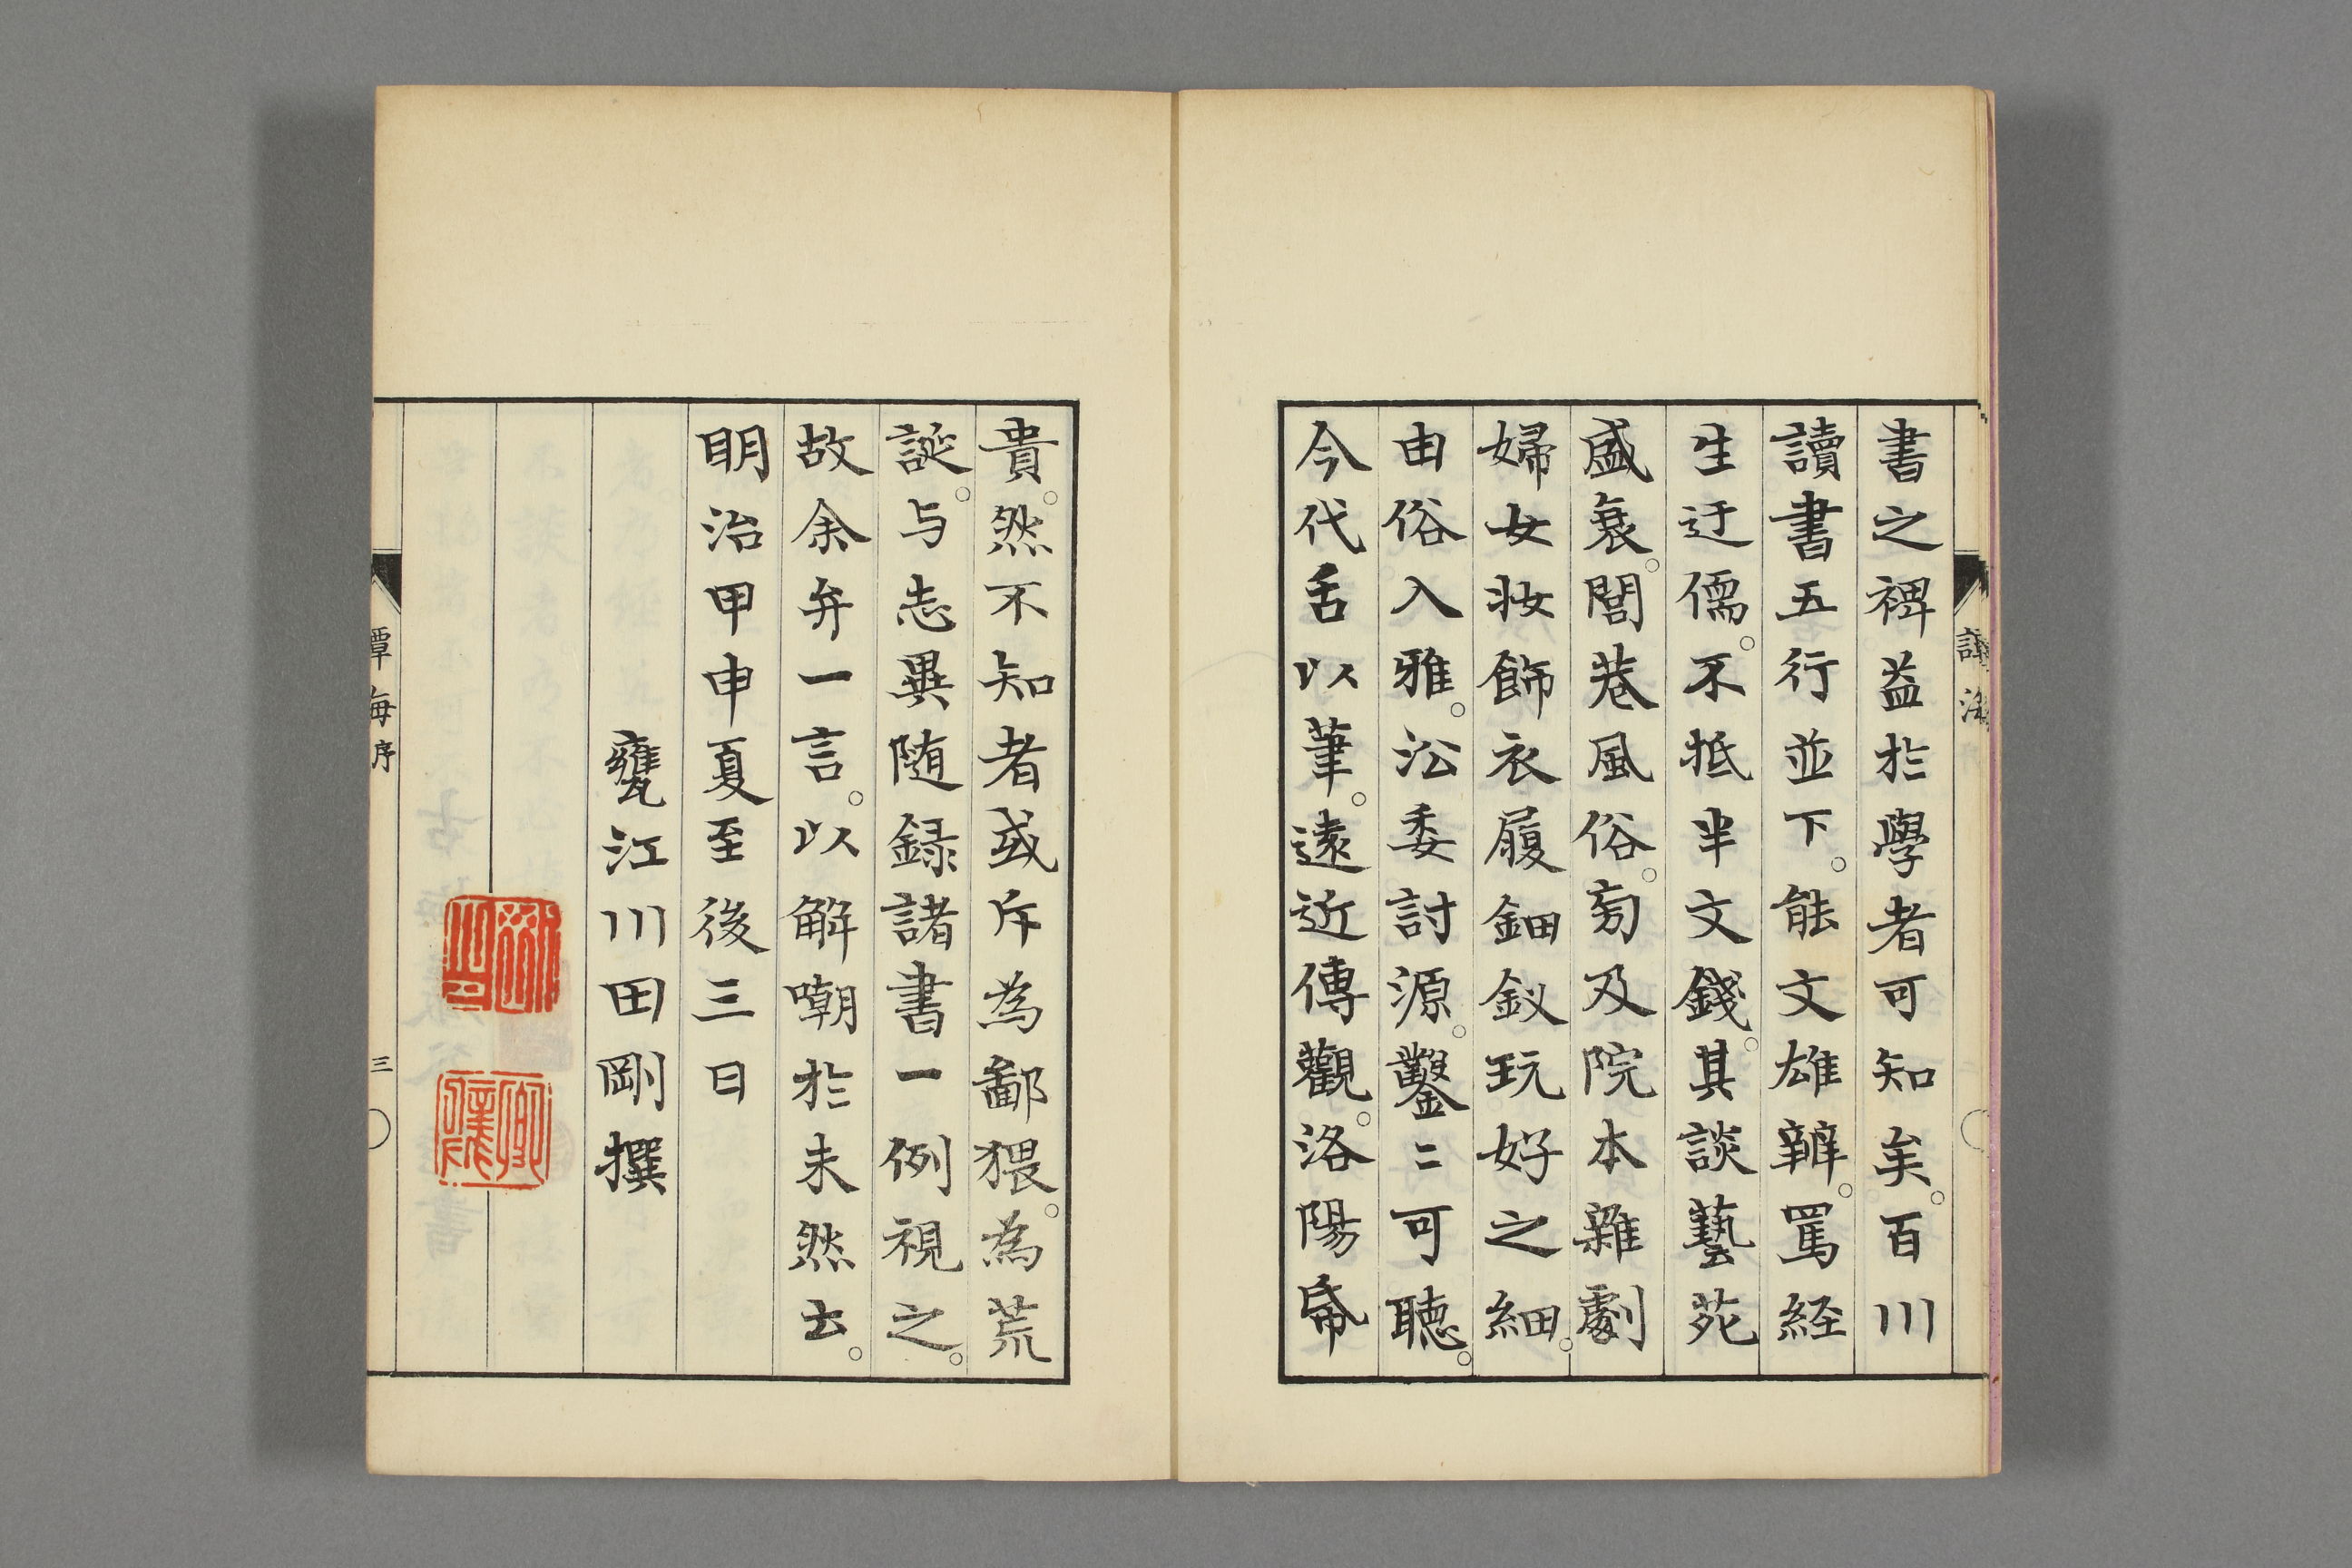 書之裨益於學者可知矣。百川
讀書五行並下。能文雄辨。罵経
生迂儒。不抵半文錢。其談藝苑
盛衰。閭巷風俗。旁及院本雜劇
婦女妝飾衣履鈿釵玩好之細。
由俗入雅。沿委討源。鑿〻可聽。
今代舌以筆。遠近傳觀。洛陽帋
貴。然不知者或斥為鄙猥。為荒
誕。与志異随録諸書一例視之。
故余弁一言。以解嘲於未然云。
明治甲申夏至後三日
甕江川田剛撰
譚海序
三